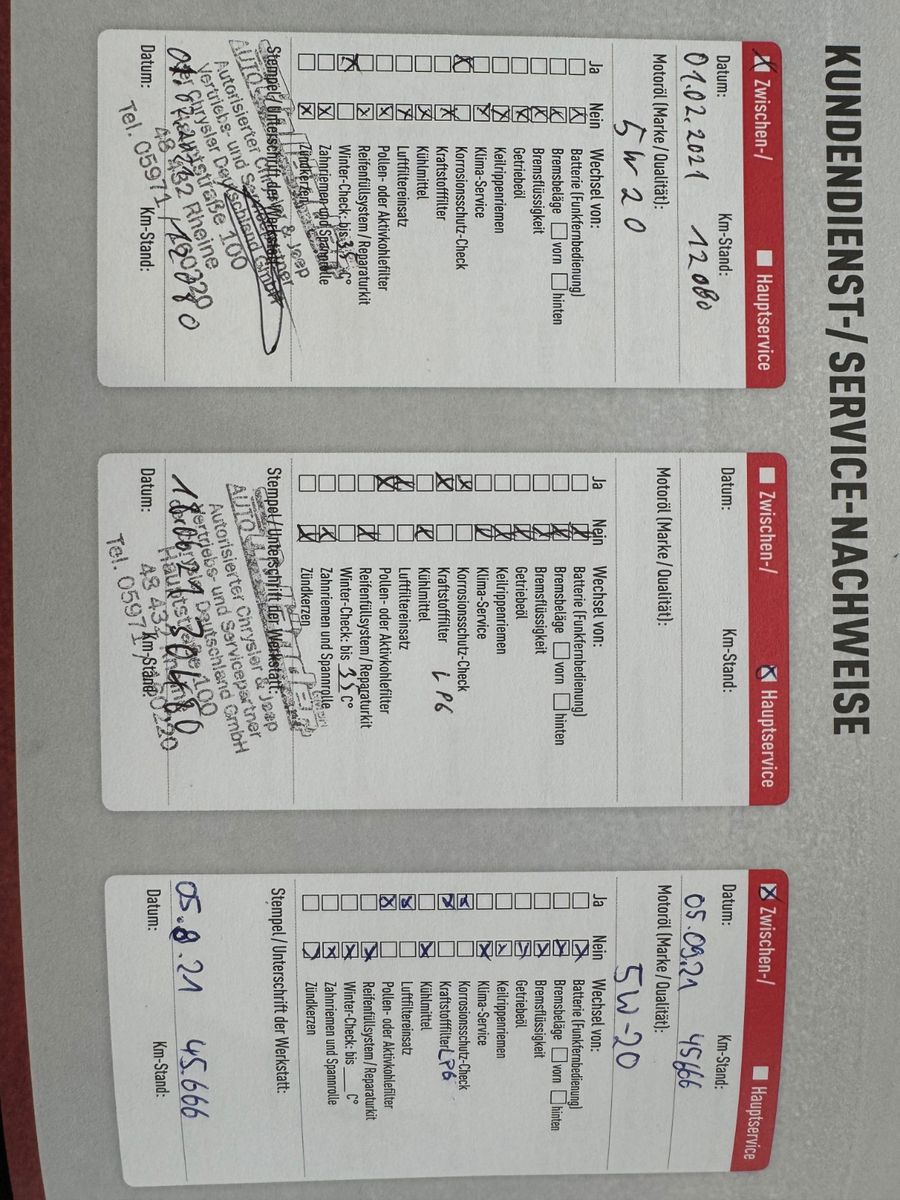 KUNDENDIENST-/ SERVICE-NACHWEISE
Zwischen-/ Hauptservice
Datum: Km-Stand:
01.02.2021 12080
Motoröl (Marke / Qualität):
5W20
Ja Nein Wechsel von:
Batterie (Funkfernbedienung)
Bremsbeläge vorn hinten
Bremsflüssigkeit
Getriebeöl
Keilrippenriemen
Klima-Service
Korrosionsschutz-Check
Kraftstofffilter
Kühlmittel
Luftfiltereinsatz
Pollen- oder Aktivkohlefilter
Reifenfüllsystem / Reparaturkit
Winter-Check: bis 35 C°
Zahnriemen und Spannrolle
Zündkerzen
Stempel / Unterschrift der Werkstatt:
AUTO
Autorisierter & Jeep
Vertriebs- und
Deutschland GmbH
100
Rheine
Tel. 05971/
12080
Datum: Km-Stand:
Zwischen-/ Hauptservice
Datum: Km-Stand:
Motoröl (Marke / Qualität):
Ja Nein Wechsel von:
Batterie (Funkfernbedienung)
Bremsbeläge vorn hinten
Bremsflüssigkeit
Getriebeöl
Keilrippenriemen
Klima-Service
Korrosionsschutz-Check
Kraftstofffilter LPG
Kühlmittel
Luftfiltereinsatz
Pollen- oder Aktivkohlefilter
Reifenfüllsystem / Reparaturkit
Winter-Check: bis 35 C°
Zahnriemen und Spannrolle
Zündkerzen
Stempel / Unterschrift der Werkstatt:
AUTO
Autorisierter Chrysler & Jeep
Vertriebs- und Servicepartner
Deutschland GmbH
100
Tel. 05971
Datum: Km-Stand:
Zwischen-/ Hauptservice
Datum: Km-Stand:
05.09.21 45666
Motoröl (Marke / Qualität):
5W-20
Ja Nein Wechsel von:
Batterie (Funkfernbedienung)
Bremsbeläge vorn hinten
Bremsflüssigkeit
Getriebeöl
Keilrippenriemen
Klima-Service
Korrosionsschutz-Check
Kraftstofffilter LPG
Kühlmittel
Luftfiltereinsatz
Pollen- oder Aktivkohlefilter
Reifenfüllsystem / Reparaturkit
Winter-Check: bis ____ C°
Zahnriemen und Spannrolle
Zündkerzen
Stempel / Unterschrift der Werkstatt:
05.8.21 45.666
Datum: Km-Stand: